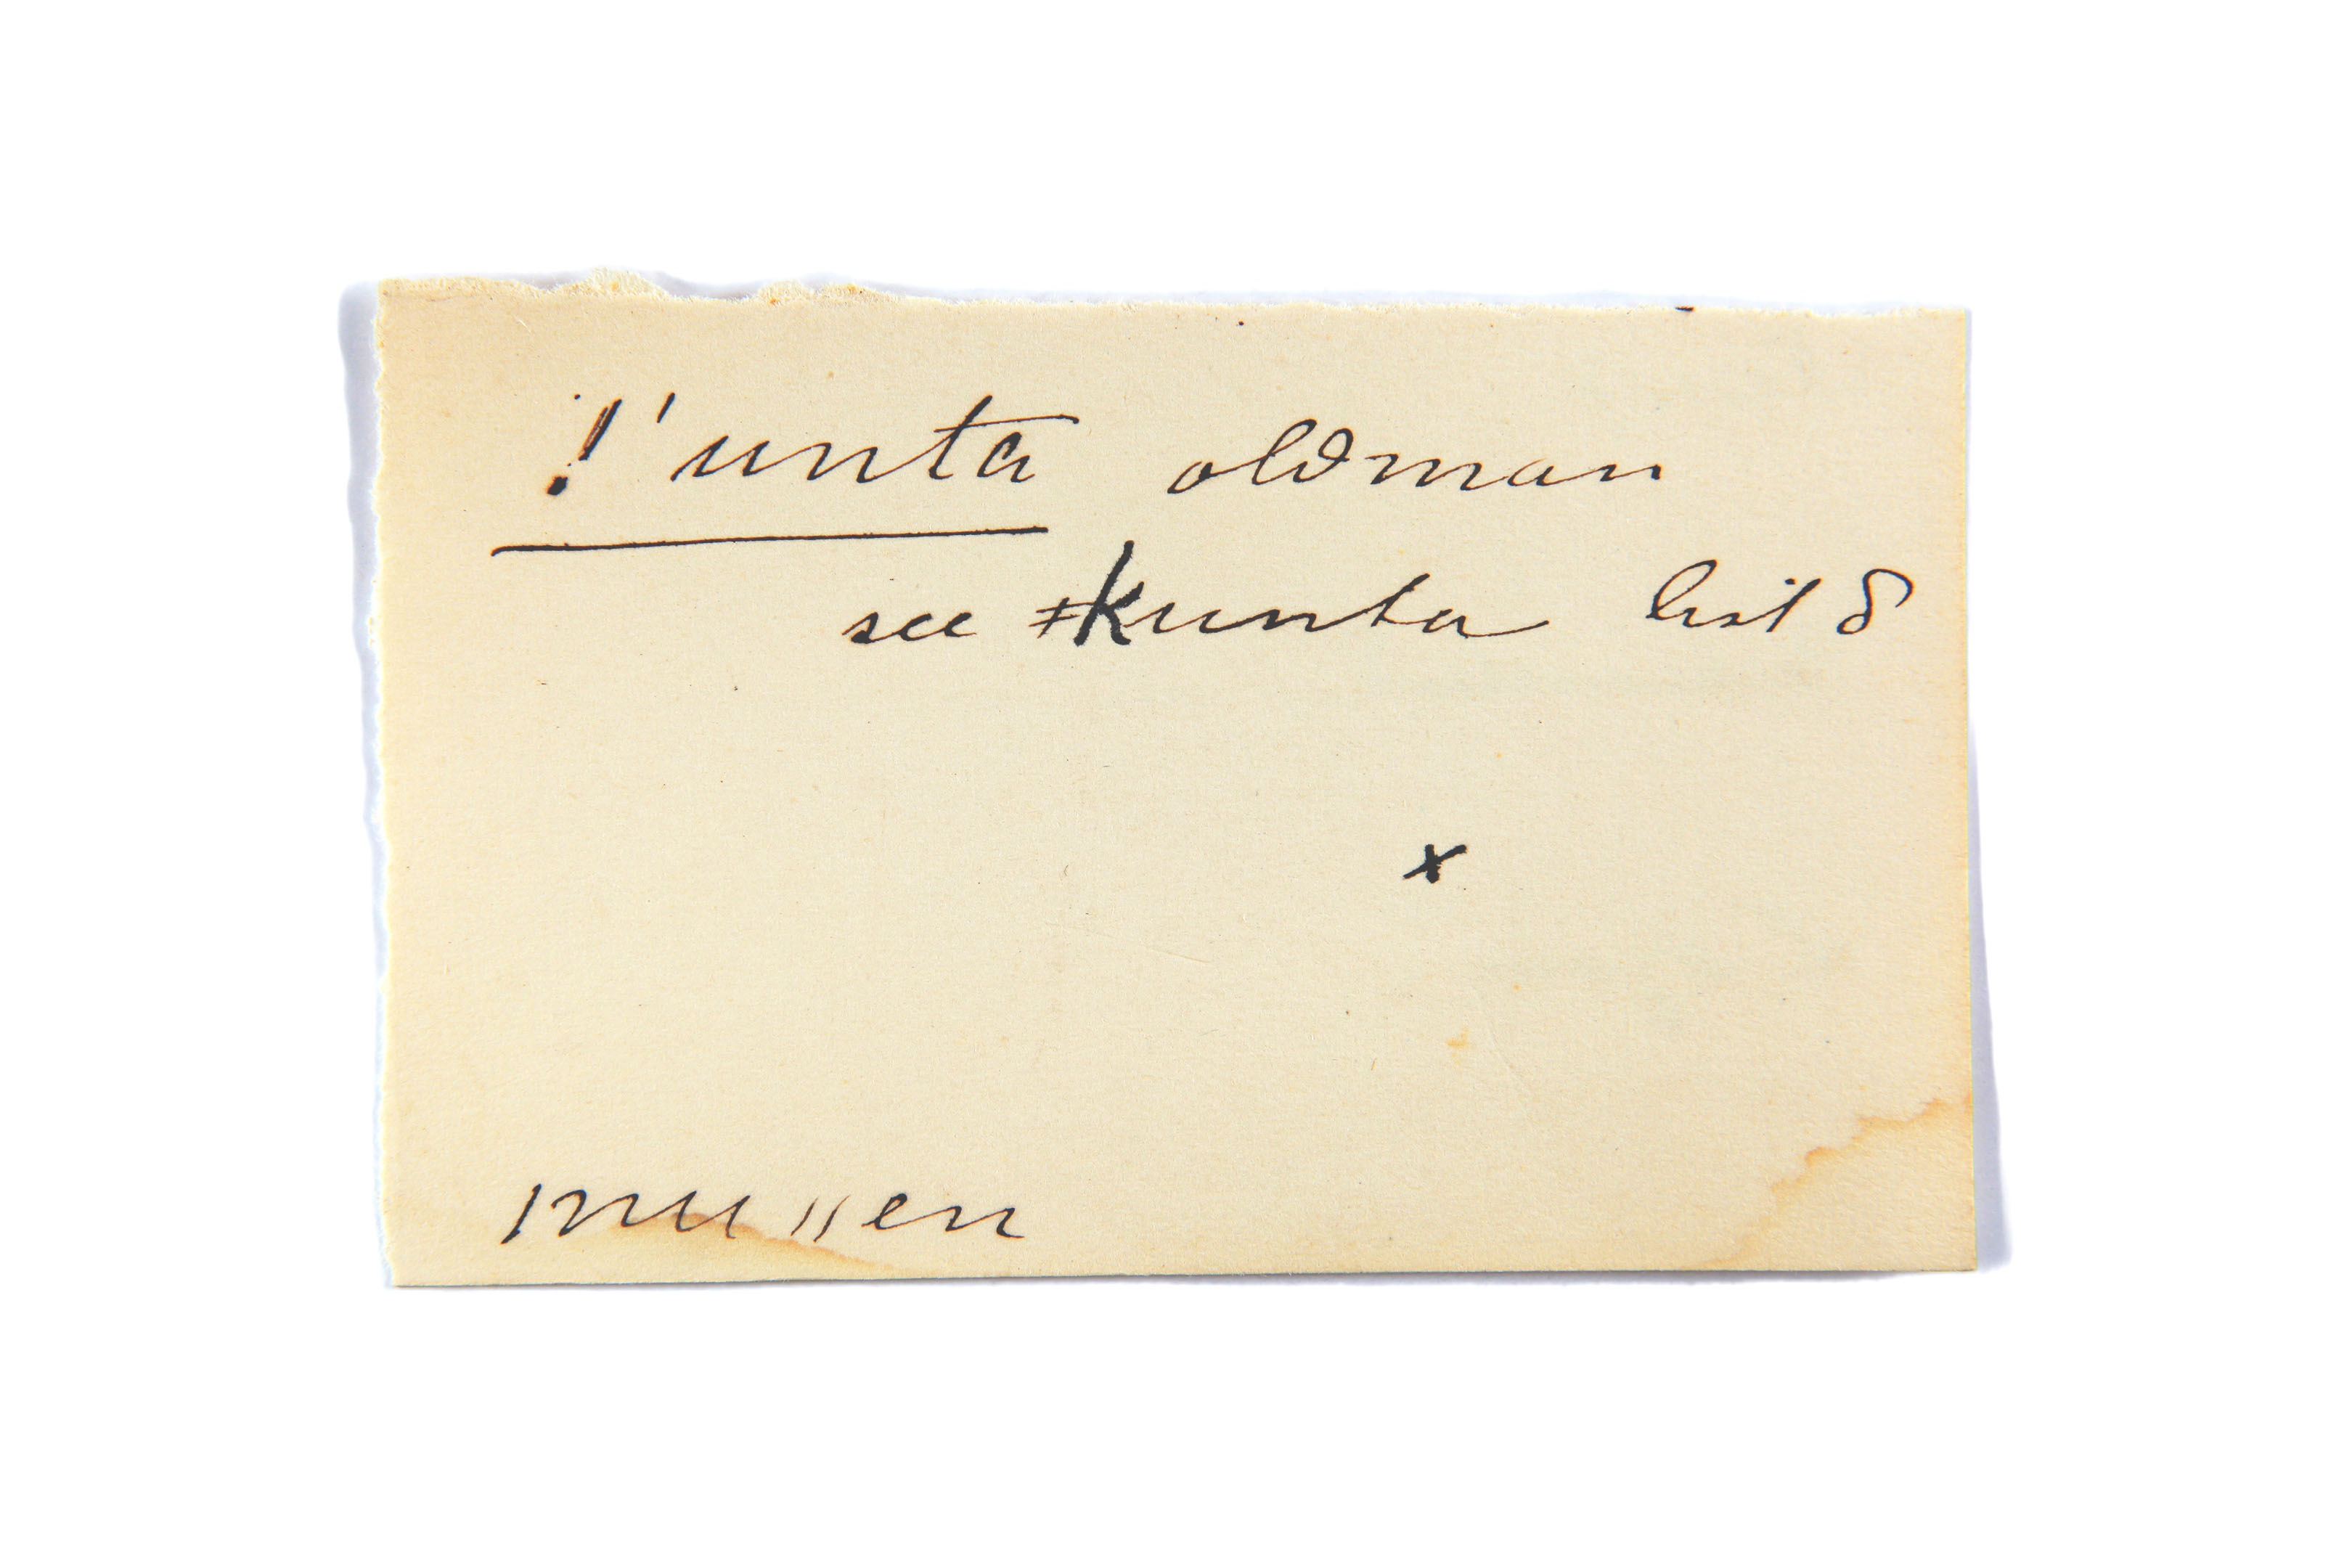 !'unta oldman
see ǂkunta list 8
x
|nu ||en